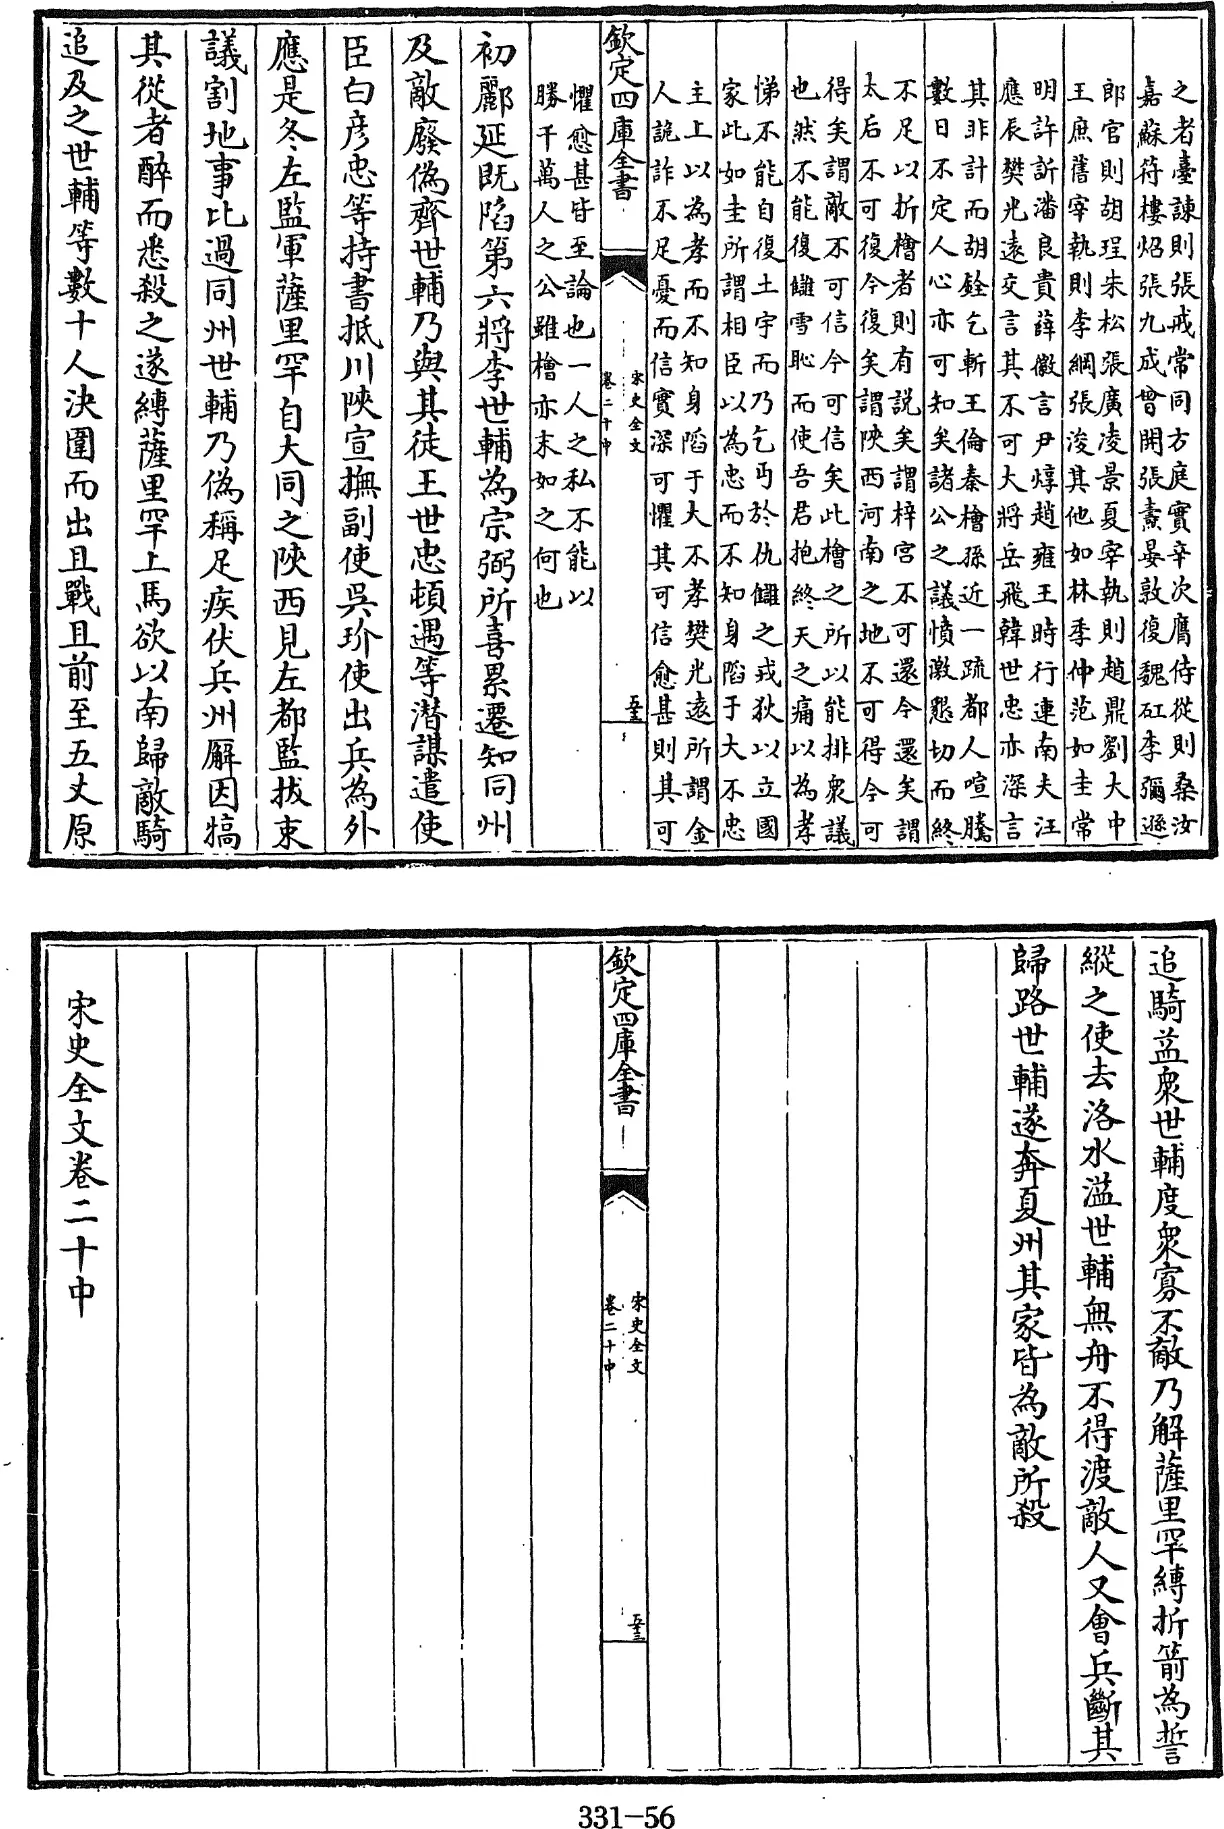 之者臺諫則張戒常同方庭實辛次膺侍從則桑汝
嘉蘇符樓炤張九成曾開張燾晏敦復魏矼李彌遜
郎官則胡珵朱松張廣凌景夏宰執則趙鼎劉大中
王庶舊宰執則李綱張浚其他如林季仲范如圭常
明許訢潘良貴薛徽言尹焞趙雍王時行連南夫汪
應辰樊光遠交言其不可大將岳飛韓世忠亦深言
其非計而胡銓乞斬王倫秦檜孫近一疏都人喧騰
數日不定人心亦可知矣諸公之議憤激懇切而終
不足以折檜者則有説矣謂梓宮不可還今還矣謂
太后不可復今復矣謂陜西河南之地不可得今可
得矣謂敵不可信今可信矣此檜之所以能排衆議
也然不能復讎雪恥而使吾君抱終天之痛以為孝
悌不能自復土宇而乃乞丐於仇讎之戎狄以立國
家此如圭所謂相臣以為忠而不知身陷于大不忠
主上以為孝而不知身陷于大不孝樊光遠所謂金
人詭詐不足憂而信實深可懼其可信愈甚則其可
欽定四庫全書
宋史全文
卷二十中
五十三
懼愈甚皆至論也一人之私不能以
勝千萬人之公雖檜亦末如之何也
初鄜延既陷第六將李世輔為宗弼所喜累遷知同州
及敵廢偽齊世輔乃與其徒王世忠頓遇等潜謀遣使
臣白彦忠等持書抵川陜宣撫副使吳玠使出兵為外
應是冬左監軍薩里罕自大同之陜西見左都監拔束
議割地事比過同州世輔乃偽稱足疾伏兵州廨因犒
其從者醉而悉殺之遂縛薩里罕上馬欲以南歸敵騎
追及之世輔等數十人決圍而出且戰且前至五丈原
追騎益衆世輔度衆寡不敵乃解薩里罕縛折箭為誓
縱之使去洛水溢世輔無舟不得渡敵人又會兵斷其
歸路世輔遂奔夏州其家皆為敵所殺
欽定四庫全書
宋史全文
卷二十中
五十三
宋史全文卷二十中
331-56